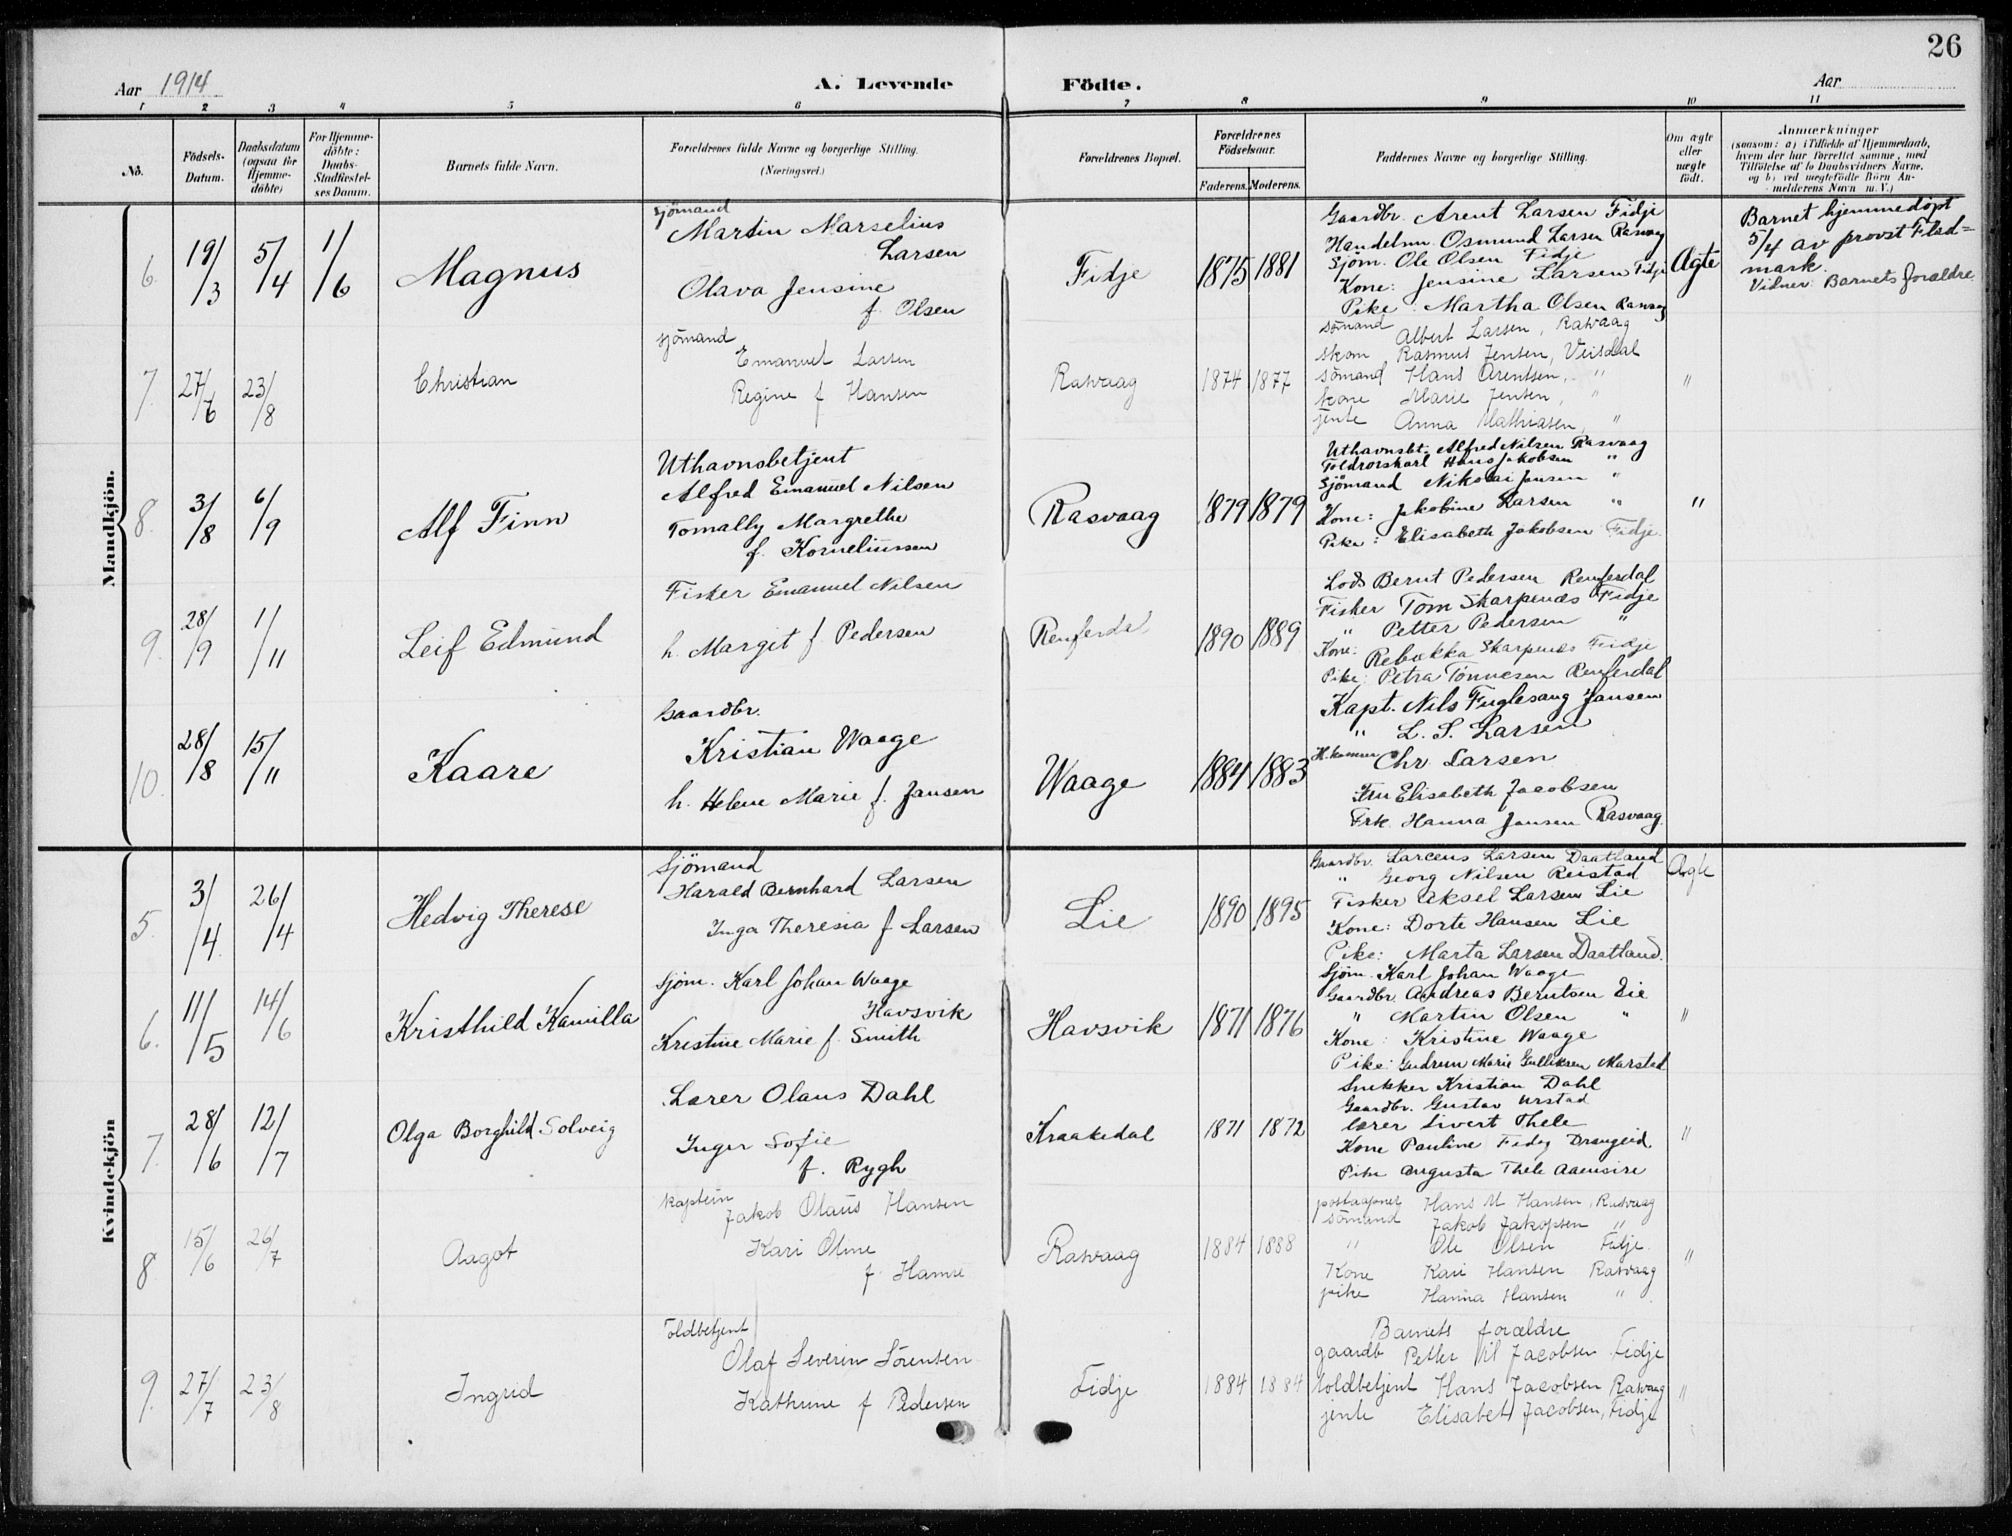 26
Aar 1914
A. Levende Födte.
Aar
1 2 3 4 5 6 7 8 9 10 11
No.
Födsels-Datum.
Daabsdatum (ogsaa for Hjemme-döbte)
For Hjemme-döbte: Daabs-Stadfæstel-ses Datum.
Barnets fulde Navn.
Forældrenes fulde Navne og borgerlige Stilling. (Næringsvei.)
Forældrenes Bopæl.
Forældrenes Födselsaar.
Faderens. Moderens.
Faddernes Navne og borgerlige Stilling.
Om ægte eller uægte födt.
Anmærkninger
(saasom: a) i Tilfælde af Hjemmedaab,
hvem der har forrettet samme, med
Tilföielse af to Daabsvidners Navne,
og b) ved uægtefödte Börn An-
melderens Navn m. V.)
Mandkjön.
6. 19/3 5/4 1/6 Magnus
Sjömand
Martin Marselius
Larsen
Olava Jensine
f. Olsen
Fidje 1875 1881
Gaardbr. Arent Larsen Fidje
Handelsm. Osmund Larsen Rasvaag
Sjöm. Ole Olsen Fidje
Kone: Jensine Larsen Fidje
Pike: Martha Olsen Rasvaag
Ægte
Barnet hjemmedöpt
5/4 av provst Flod=
mark.
Vidner: Barnets forældre.
7. 27/6 23/8 Christian
sjömand
Emanuel Larsen
Regine f Hansen
Rasvaag 1874 1877
sömand Albert Larsen, Rasvaag
skom Rasmus Jensen, Veisdal
sömand Hans Arentsen, "
kone Marie Jensen, "
jente Anna Mathiasen, "
"
8. 3/8 6/9 Alf Finn
Uthavnsbetjent
Alfred Emanuel Nilsen
Tomally Margrethe
f. Korneliussen
Rasvaag 1879 1879
Uthavnsbt. Alfred Nilsen Rasvaag
Toldrorskarl Hans Jakobsen "
Sjömand Nikolai Jansen "
Kone: Jakobine Larsen "
Pike: Elisabeth Jakobsen Fidje.
"
9. 28/9 1/11 Leif Edmund
Fisker Emanuel Nilsen
h. Margit f. Pedersen
Renferdal 1890 1889
Lods Bernt Pedersen Renferdal
Fisker Tom Skarpenæs Fidje
" Petter Pedersen "
Kone: Rebekka Skarpenæs Fidje
Pike: Petra Tönnesen Renferdal
10. 28/8 15/11 Kaare
Gaardbr.
Kristian Waage
h. Helene Marie f. Jansen
Waage 1884 1883
Kapt. Nils Fuglesang Jansen
" L. S. Larsen
Chr. Larsen
Fru Elisabeth Jacobsen
Frk. Hanna Jansen Rasvaag.
Kvindekjön
5. 3/4 26/4 Hedvig Therese
Sjömand
Harald Bernhard Larsen
Inga Theresia f Larsen
Lie 1890 1895
Gaardbr. Larcens Larsen Daatland
" Georg Nilsen Reistad
Fisker Aksel Larsen Lie
Kone: Dorte Hansen Lie
Pike: Marta Larsen Daatland.
Ægte
6. 11/5 14/6 Kristhild Kamilla
Sjöm. Karl Johan Waage
Havsvik
Kristine Marie f. Smith
Havsvik 1871 1876
Sjöm. Karl Johan Waage
Gaardbr. Andreas Berntsen Lie
" Martin Olsen "
Kone: Kristine Waage
Pike: Gudrun Marie Gulliksen Marstad
"
7. 28/6 12/7 Olga Borghild Solveig
Lærer Olaus Dahl
Inger Sofie
f. Rygh
Kraakedal 1871 1872
Snekker Kristian Dahl
Gaardbr. Gustav Urstad
lærer Sivert Thele
Kone Pauline Fidej Drangeid
Pike Augusta Thele Aaensire
"
8 15/6 26/7 Aagot
kaptein
Jakob Olaus Hansen
Kari Oline
f. Hamre
Rasvaag 1884 1888
postaapner Hans M Hansen, Rasvaag
sömand Jakob Jakopsen "
" Ole Olsen Fidje
Kone Kari Hansen Rasvaag
pike Hanna Hansen "
"
9. 27/7 23/8 Ingrid
Toldbetjent
Olaf Severin Sörensen
Kathrine f Pedersen
Fidje 1884 1884
Barnets forældre
gaardb Petter Vil Jacobsen Fidje
toldbetjent Hans Jacobsen Rasvaag
jente Elisabet Jacobsen, Fidje
"